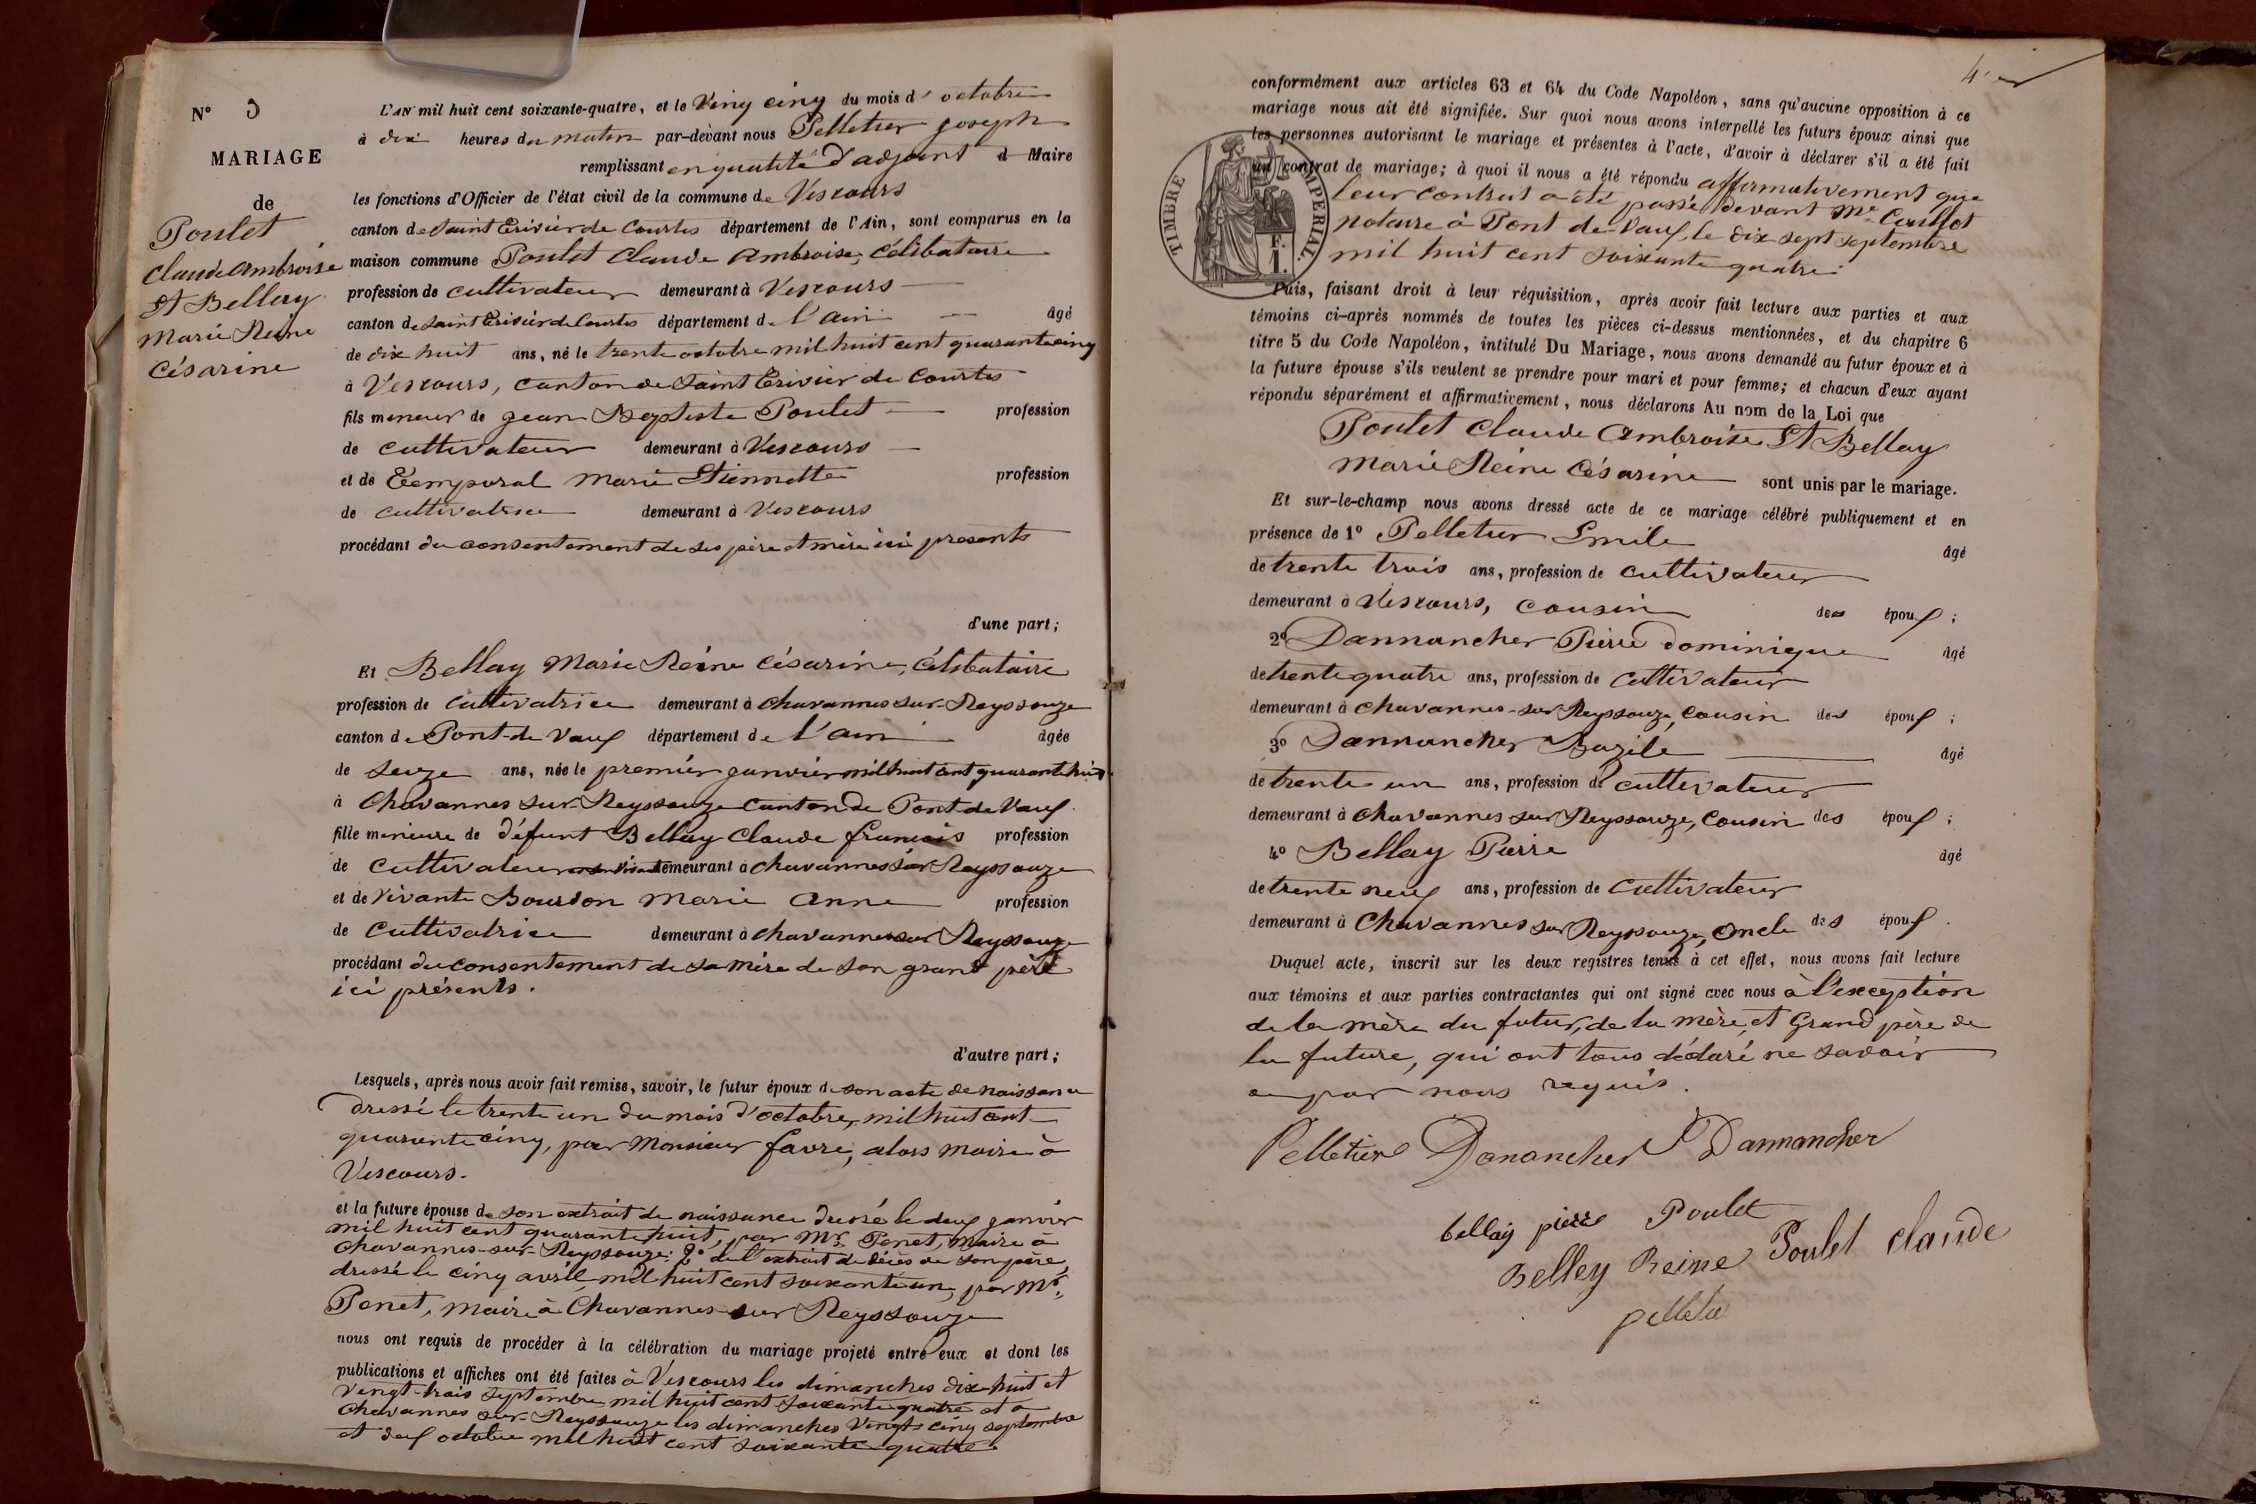 N° 5
MARIAGE
de
Poulet
Claude Ambroise
et Bellay
Marie Reine
Césarine
L'AN mil huit cent soixante-quatre, et le Vingt cinq du mois d'octobre
à dix heures du matin par-devant nous Pelletier Joseph
remplissant en qualité d'adjoint d Maire
les fonctions d'Officier de l'état civil de la commune de Vescours
canton de Saint Trivier de Courtes département de l'Ain, sont comparus en la
maison commune Poulet Claude Ambroise, Célibataire
profession de cultivateur demeurant à Vescours
canton de Saint Trivier de Courtes département de l'ain âgé
de dix huit ans, né le trente octobre mil huit cent quarante cinq
à Vescours, canton de Saint Trivier de Courtes
fils mineur de Jean Baptiste Poulet profession
de cultivateur demeurant à Vescours
et de Témporal Marie Etiennette profession
de cultivatrice demeurant à Vescours
procédant du consentement de ses père et mère ici présents
d'une part;
Et Bellay Marie Reine Césarine, Célibataire
profession de Cultivatrice demeurant à Chavannes sur-Reyssouze
canton de Pont-de Vaux département de l'ain âgée
de seize ans, née le premier janvier mil huit cent quarante huit
à Chavannes sur-Reyssouze canton de Pont de Vaux
fille mineure de défunt Bellay Claude françois profession
de cultivateur demeurant à Chavannes sur Reyssouze
et de Vivante Bourdon Marie Anne profession
de Cultivatrice demeurant à Chavannes sur Reyssouze
procédant du consentement de sa mère de son grand père
ici présents.
d'autre part;
Lesquels, après nous avoir fait remise, savoir, le futur époux de son acte de naissance
dressé le trente un du mois d'octobre, mil huit cent
quarante cinq, par Monsieur favre, alors maire à
Vescours.
et la future épouse de son extrait de naissance dressé le deux janvier
mil huit cent quarante huit, par Mr. Penet, Maire à
Chavannes-sur-Reyssouze: 2° de l'extrait de décès de son père,
dressé le cinq avril mil huit cent soixante un, par Mr.
Penet, maire à Chavannes sur Reyssouze
nous ont requis de procéder à la célébration du mariage projeté entre eux et dont les
publications et affiches ont été faites à Vescours les dimanches dix huit et
vingt-trois septembre mil huit cent soixante quatre et à
Chavannes sur-Reyssouze les dimanches Vingt cinq septembre
et deux octobre mil huit cent soixante quatre.
4
conformément aux articles 63 et 64 du Code Napoléon, sans qu'aucune opposition à ce
mariage nous ait été signifiée. Sur quoi nous avons interpellé les futurs époux ainsi que
les personnes autorisant le mariage et présentes à l'acte, d'avoir à déclarer s'il a été fait
un contrat de mariage; à quoi il nous a été répondu affirmativement que
leur contrat a été passé devant Me. Coullet
notaire à Pont de Vaux, le dix sept septembre
mil huit cent soixante quatre.
TIMBRE IMPERIAL.
F.
1.
Puis, faisant droit à leur réquisition, après avoir fait lecture aux parties et aux
témoins ci-après nommés de toutes les pièces ci-dessus mentionnées, et du chapitre 6
titre 5 du Code Napoléon, intitulé Du Mariage, nous avons demandé au futur époux et à
la future épouse s'ils veulent se prendre pour mari et pour femme; et chacun d'eux ayant
répondu séparément et affirmativement, nous déclarons Au nom de la Loi que
Poulet Claude Ambroise et Bellay
Marie Reine Césarine sont unis par le mariage.
Et sur-le-champ nous avons dressé acte de ce mariage célébré publiquement et en
présence de 1° Pelletier Emile âgé
de trente trois ans, profession de cultivateur
demeurant à Vescours, cousin des époux;
2° Dannancher Pierre Dominique âgé
de trente quatre ans, profession de cultivateur
demeurant à Chavannes-sur Reyssouze, Cousin des époux;
3° Dannancher Bazile âgé
de trente un ans, profession de cultivateur
demeurant à Chavannes sur Reyssouze, Cousin des époux;
4° Bellay Pierre âgé
de trente neuf ans, profession de Cultivateur
demeurant à Chavannes sur Reyssouze, Oncle des époux.
Duquel acte, inscrit sur les deux registres tenus à cet effet, nous avons fait lecture
aux témoins et aux parties contractantes qui ont signé avec nous à l'exception
de la mère du futur, de la mère, et Grand père de
la future, qui ont tous déclaré ne savoir
par nous requis.
Pelletier Danancher P Dannancher
bellay pierre Poulet
Belley Reine Poulet Claude